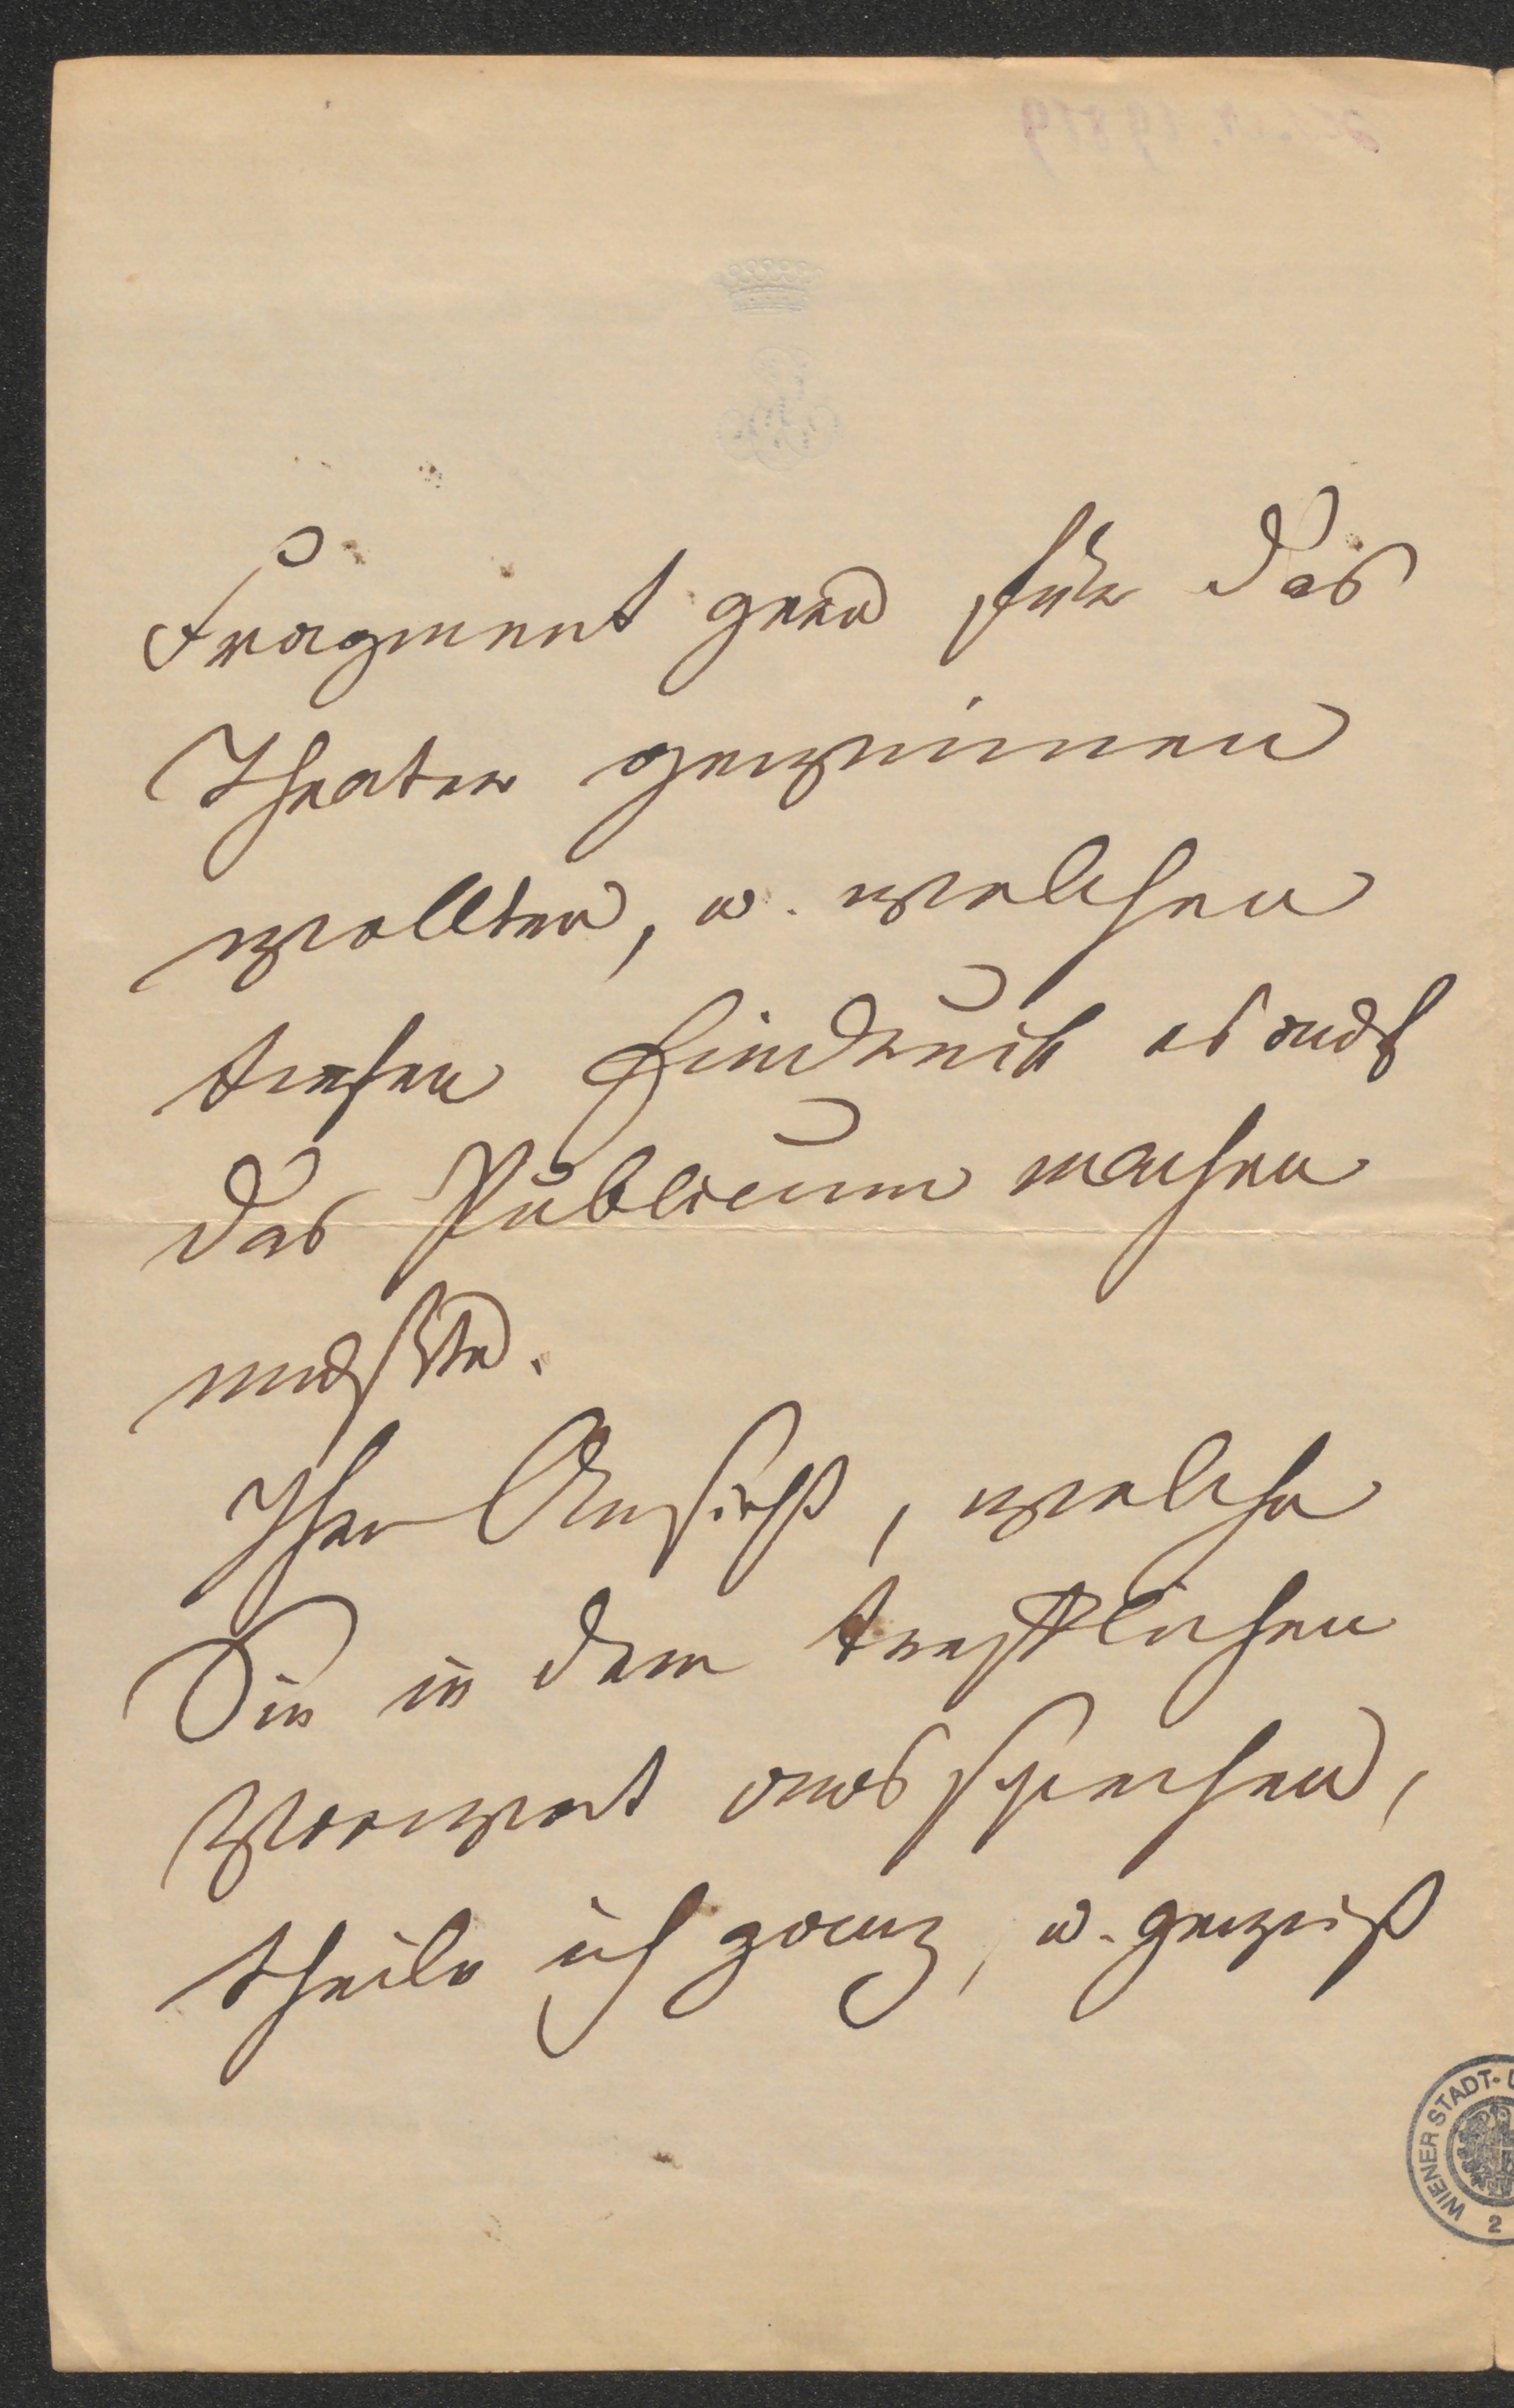 Fragment gern für das
Theater gewinnen
wollten, u. welchen
tiefen Eindruck es auf
das Publicum machen
müßte.
Ihre Ansicht, welche
Sie in dem trefflichen
Vorwort aussprechen,
theile ich ganz, u. gewiß
WIENER STADT-
2